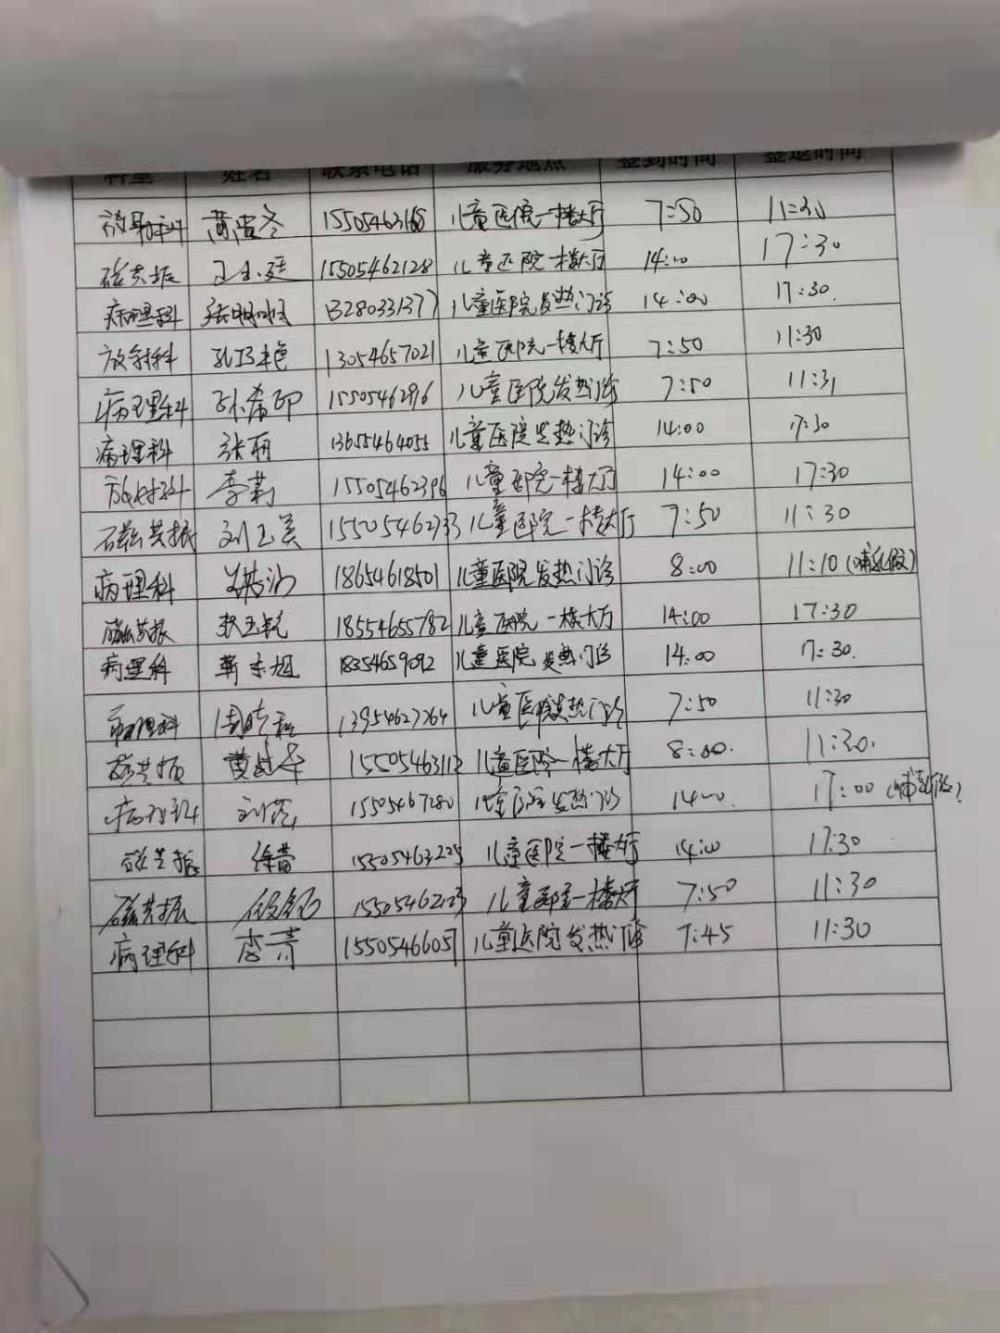 科室 姓名 联系电话 服务地点 签到时间 签退时间
放射科 15505463168 儿童医院一楼大厅 7:50 11:30
磁共振 15505462128 儿童医院一楼大厅 14:00 17:30
病理科 13280331377 儿童医院发热门诊 14:00 17:30
放射科 13054657021 儿童医院一楼大厅 7:50 11:30
病理科 孙希印 1550546296 儿童医院发热门诊 7:50 11:31
病理科 张丽 13655464055 儿童医院发热门诊 14:00 17:30
放射科 李莉 15505462396 儿童医院一楼大厅 14:00 17:30
磁共振 刘玉美 15505462733 儿童医院一楼大厅 7:50 11:30
病理科 18654618501 儿童医院发热门诊 8:00 11:10(哺乳假)
磁共振 18554655782 儿童医院一楼大厅 14:00 17:30
病理科 靳东旭 18354659092 儿童医院发热门诊 14:00 17:30
病理科 13954627264 儿童医院发热门诊 7:50 11:30
磁共振 15505463112 儿童医院一楼大厅 8:00 11:30
病理科 15505467280 儿童医院发热门诊 14:00 17:00(哺乳假)
磁共振 徐蕾 15505463225 儿童医院一楼大厅 14:00 17:30
磁共振 儿童医院一楼大厅 7:50 11:30
病理科 李青 1550546605 儿童医院发热门诊 7:45 11:30